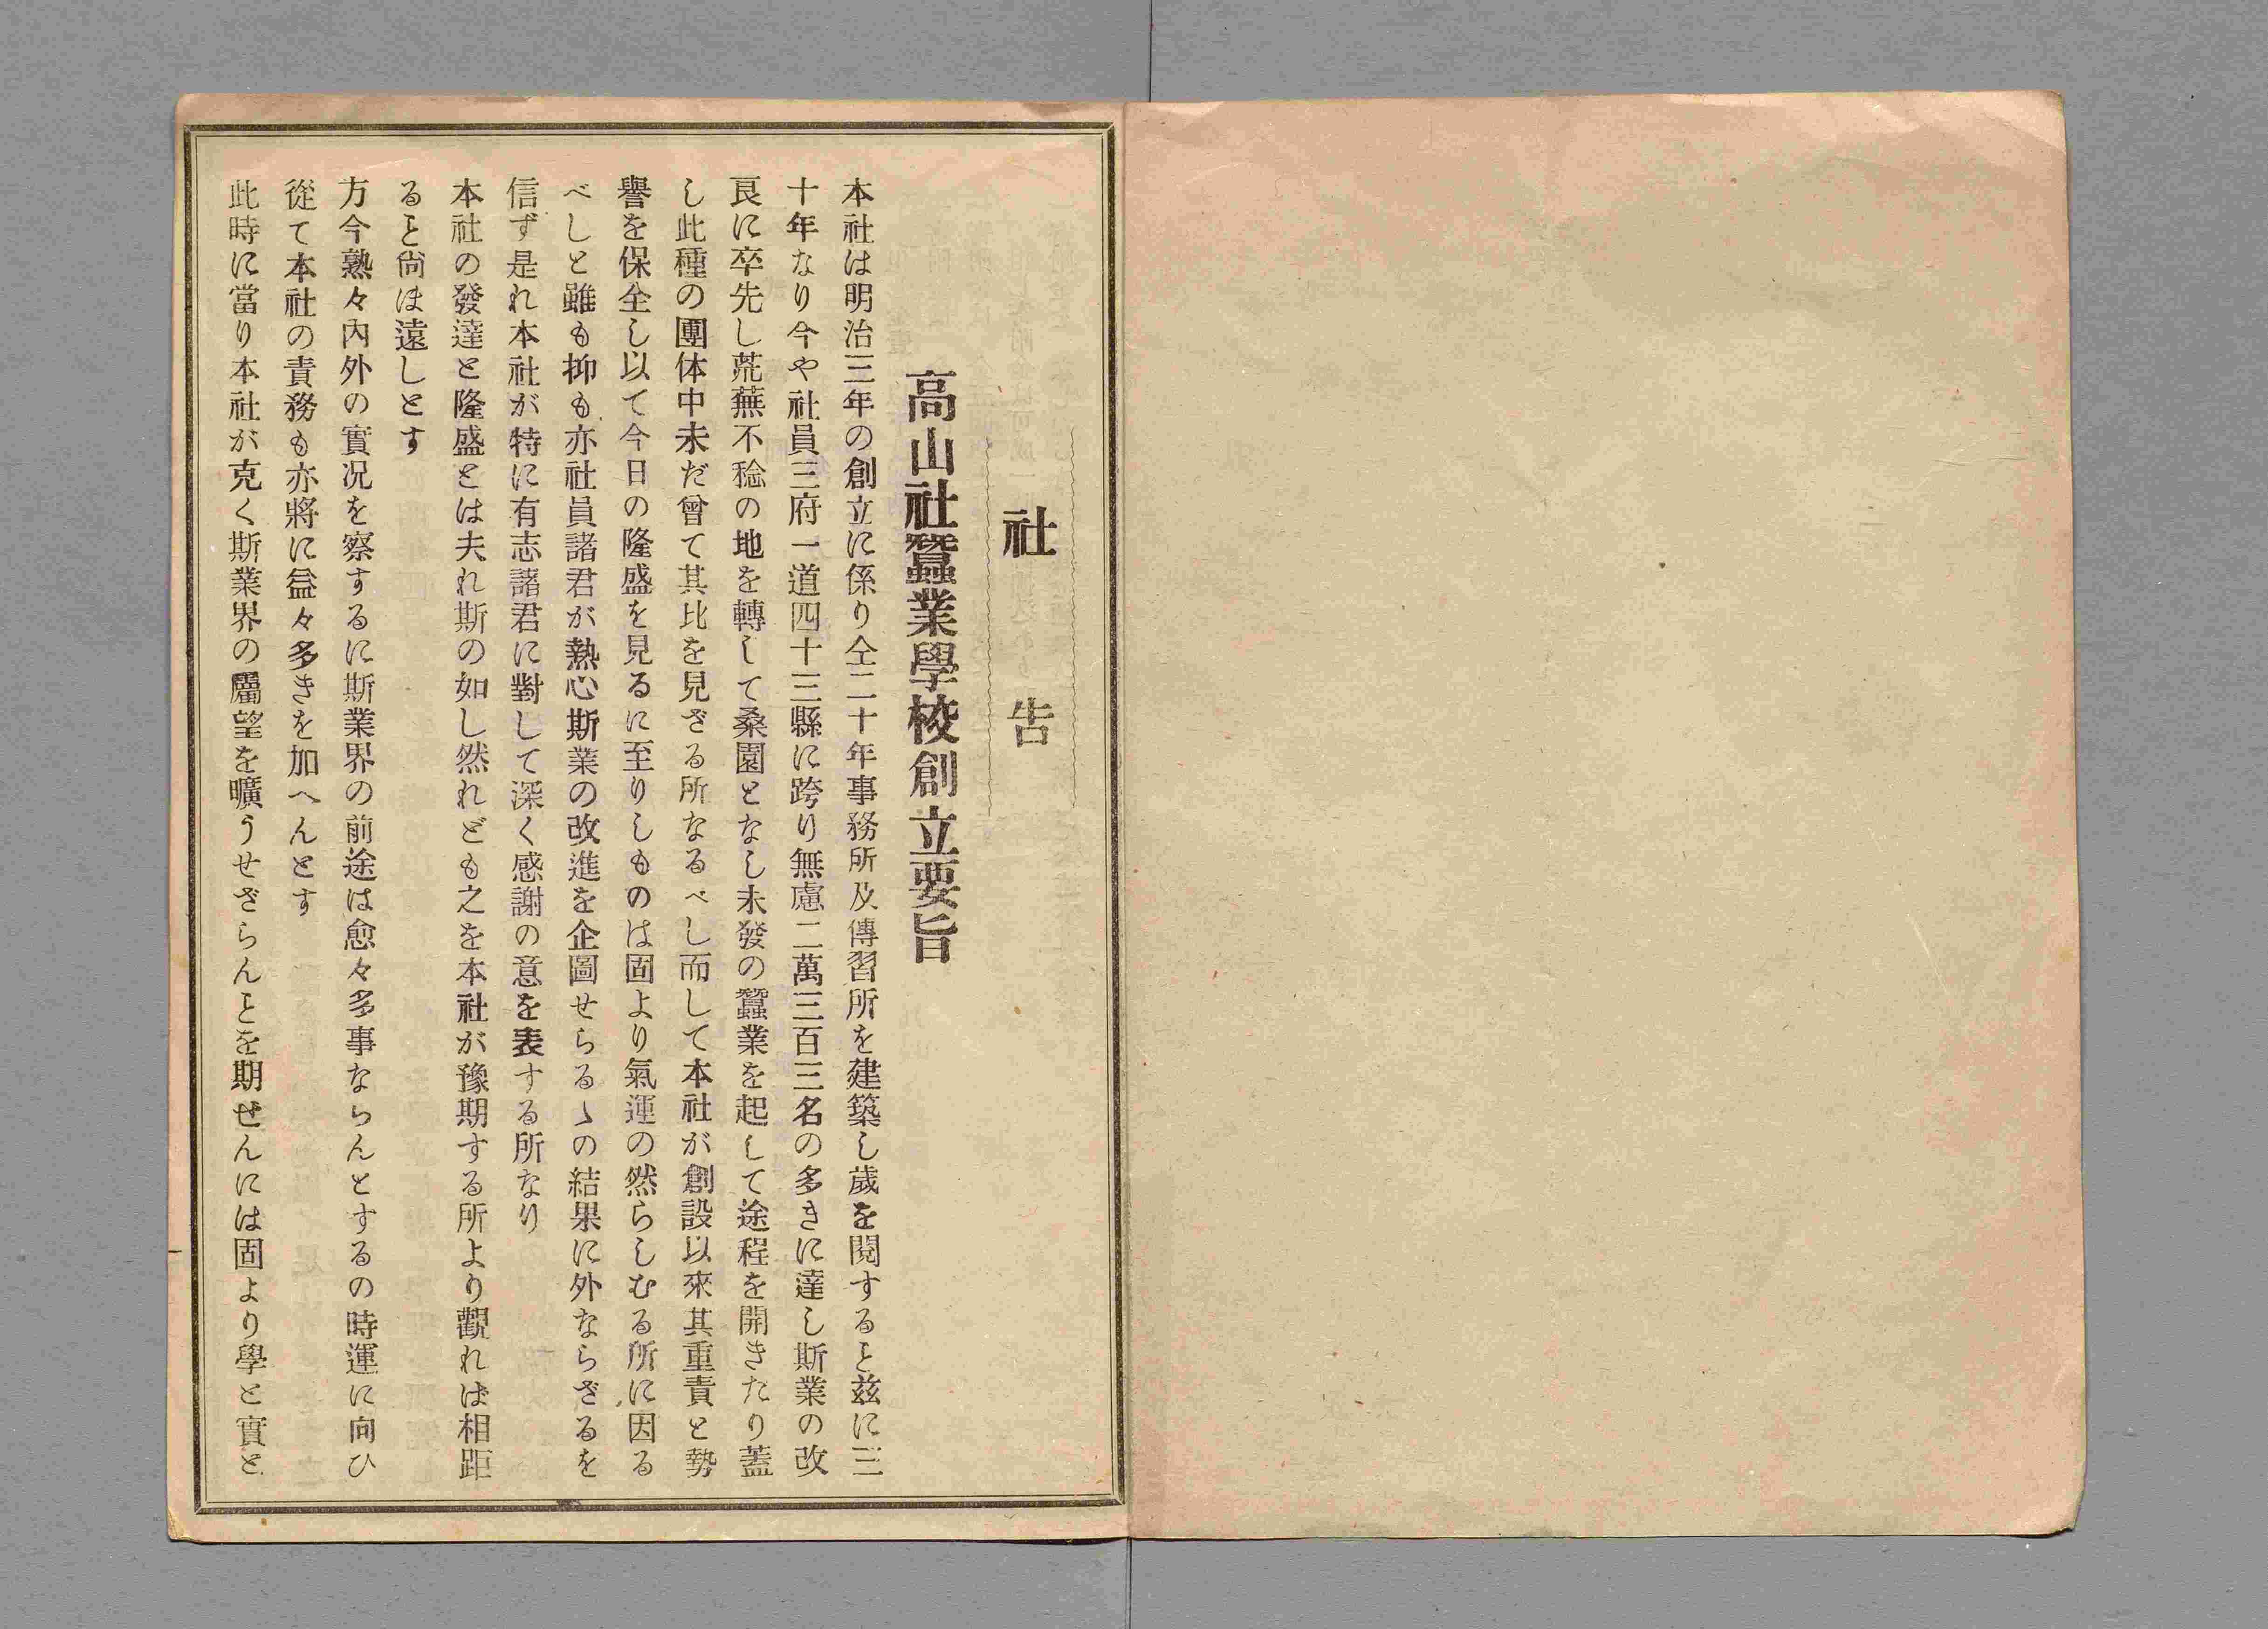 社告
高山社蠶業學校創立要旨
本社は明治三年の創立に係り仝二十年事務所及傳習所を建築し歲を閱するヿ玆に三
十年なり今や社員三府一道四十三縣に跨り無慮二萬三百三名の多きに達し斯業の改
良に卒先し荒蕪不稔の地を轉して桑園となし未發の蠶業を起して途程を開きたり蓋
し此種の團体中未だ曾て其比を見ざる所なるべし而して本社が創設以來其重責と勢
譽を保全し以て今日の隆盛を見るに至りしものは固より氣運の然らしむる所に因る
べしと雖も抑も亦社員諸君が熱心斯業の改進を企圖せらるゝの結果に外ならざるを
信ず是れ本社が特に有志諸君に對して深く感謝の意を表する所なり
本社の發達と隆盛とは夫れ斯の如し然れども之を本社が豫期する所より觀れは相距
るヿ尙ほ遠しとす
方今熟々內外の實况を察するに斯業界の前途は愈々多事ならんとするの時運に向ひ
從て本社の責務も亦將に益々多きを加へんとす
此時に當り本社が克く斯業界の屬望を曠うせざらんヿを期せんには固より學と實と